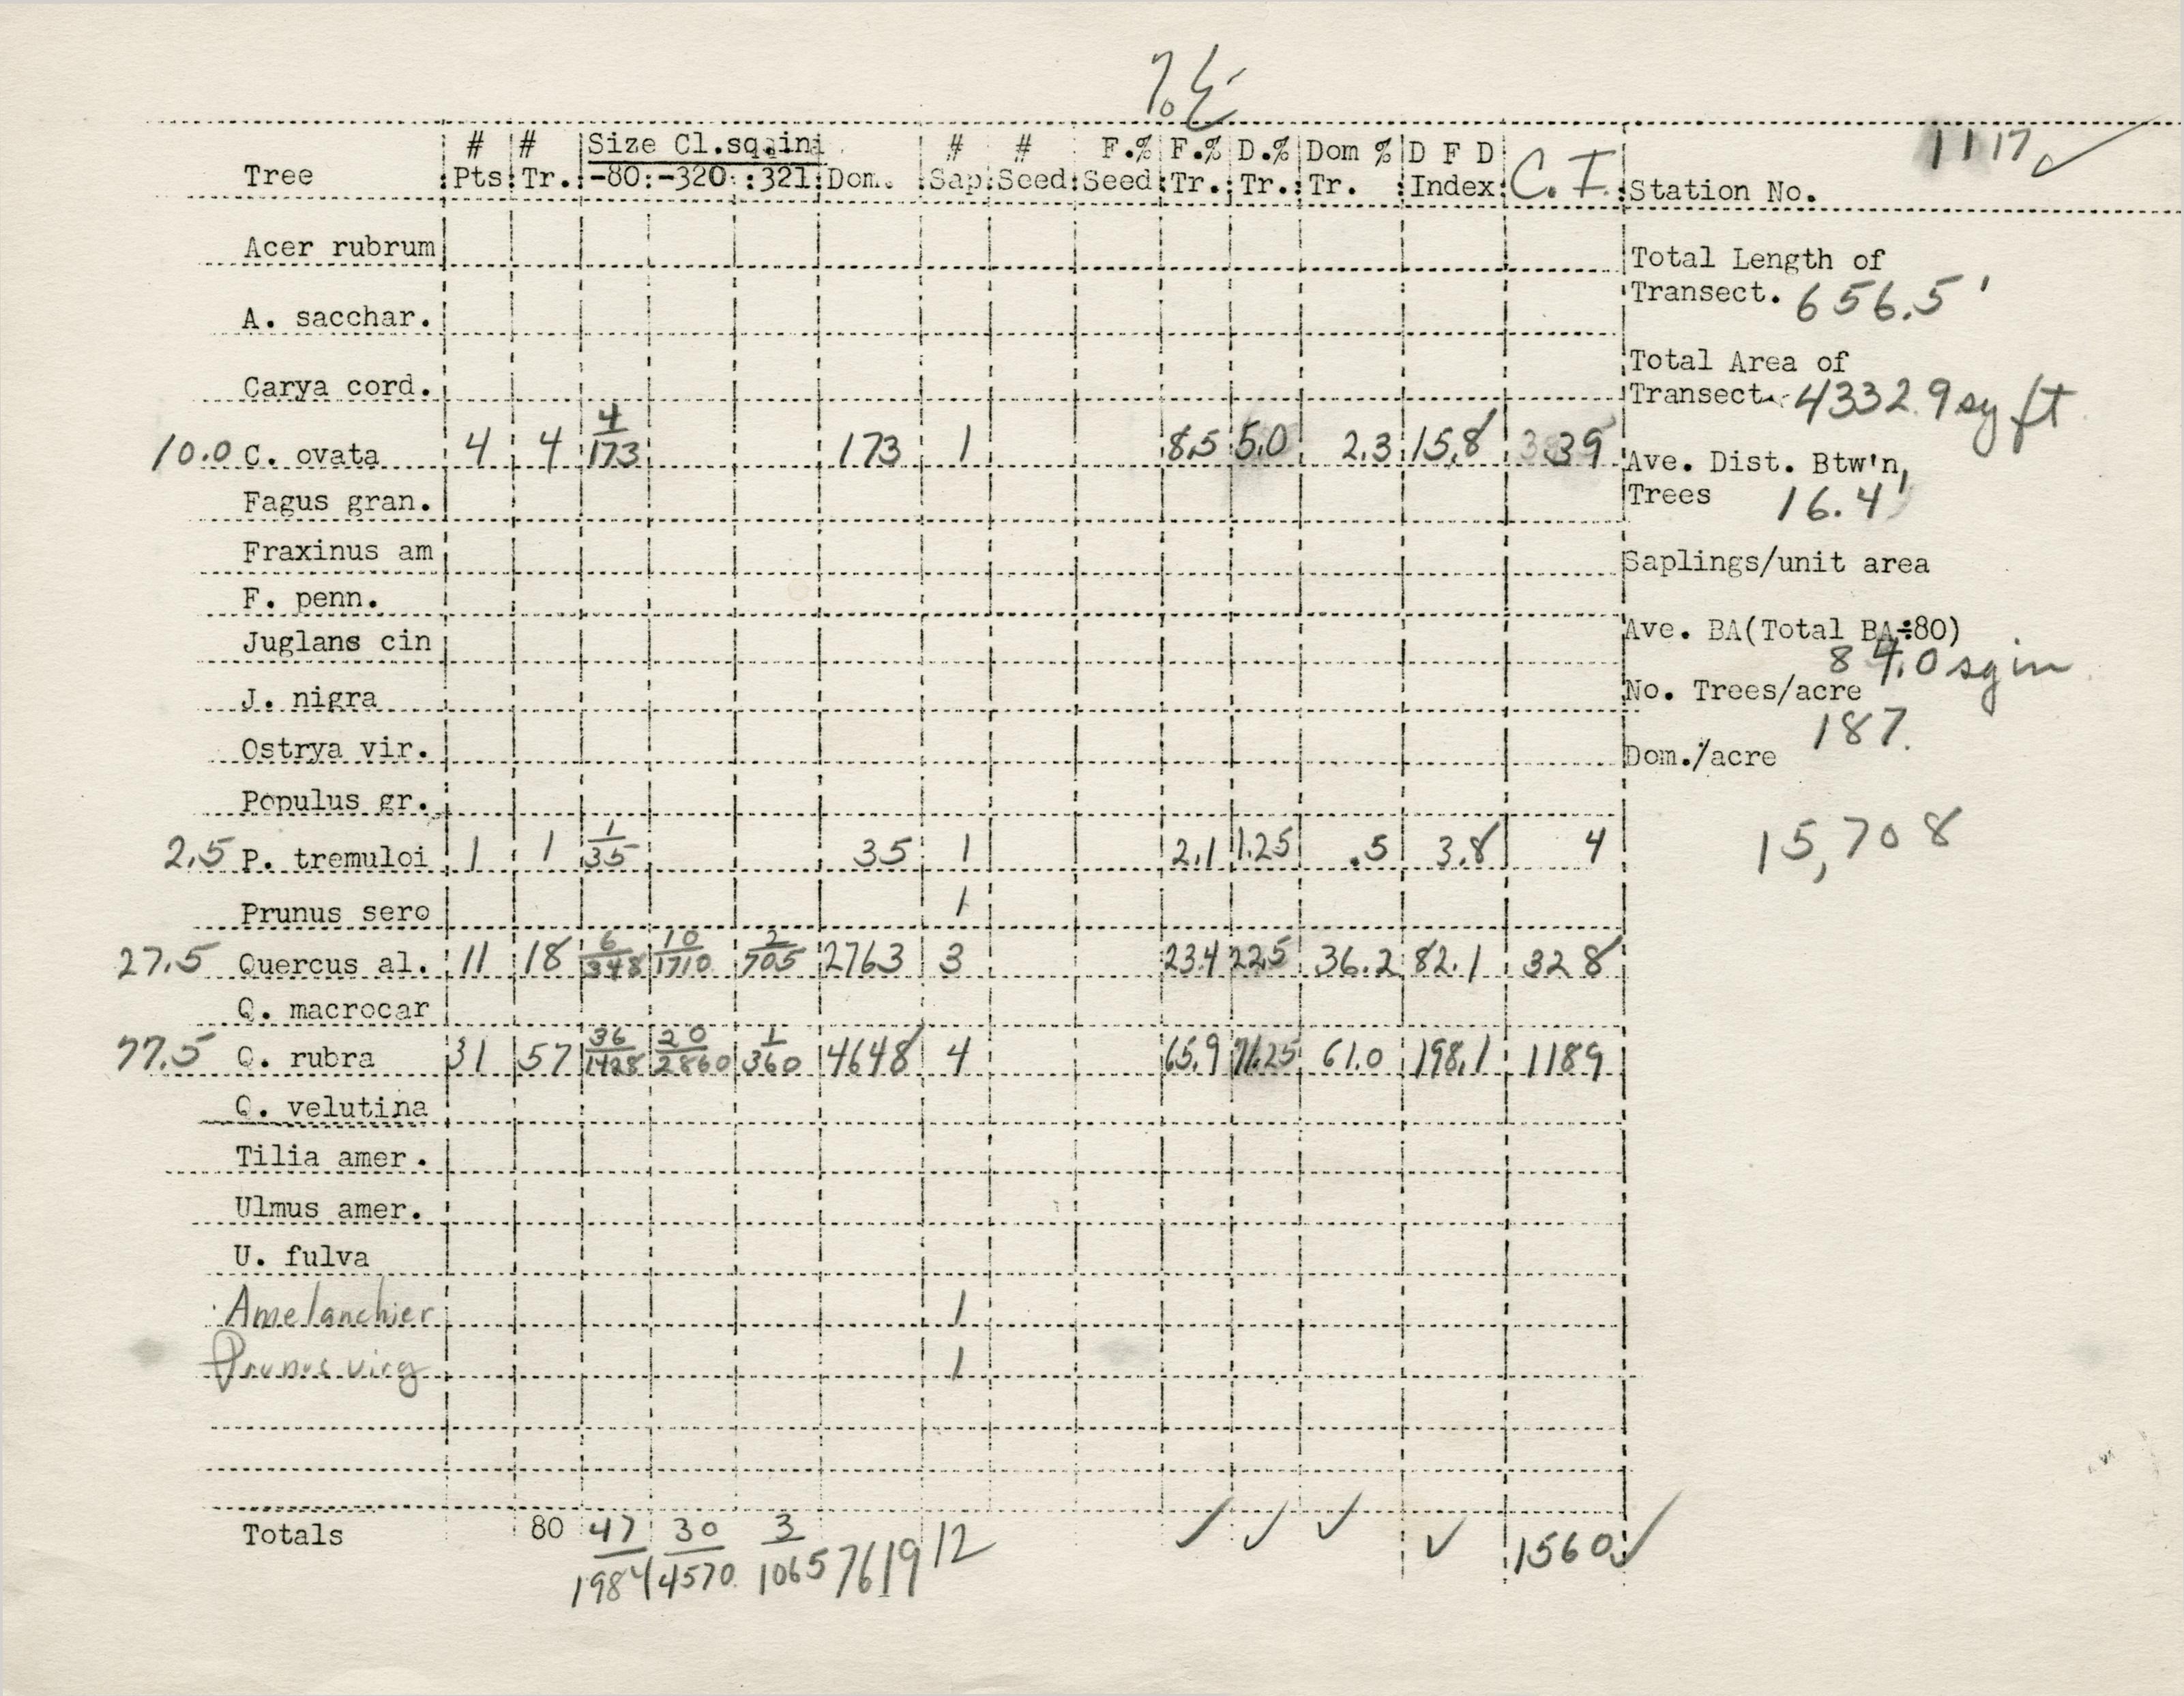 # # Size Cl.sq.in # # F.% F.% D.% Dom % D F D 1117 ✓
Tree Pts Tr. -80 -320 321 Dom. Sap Seed Seed Tr. Tr. Tr. Index C. I. Station No.
Acer rubrum Total Length of
Transect. 656.5'
A. sacchar.
Total Area of
Carya cord. Transect. 4332.9 sq ft
10.0 C. ovata 4 4 4/173 173 1 8.5 5.0 2.3 15.8 39
Ave. Dist. Btw'n
Fagus gran. Trees 16.4'
Fraxinus am Saplings/unit area
F. penn.
Juglans cin Ave. BA(Total BA÷80)
84.0 sq in
J. nigra No. Trees/acre
187.
Ostrya vir. Dom./acre
Populus gr.
2.5 P. tremuloi 1 1 1/35 35 1 2.1 1.25 .5 3.8 4 15,708
Prunus sero 1
27.5 Quercus al. 11 18 6/348 10/1710 2/705 2763 3 23.4 22.5 36.2 82.1 328
Q. macrocar
77.5 Q. rubra 31 57 36/1428 20/2860 1/360 4648 4 65.9 71.25 61.0 198.1 1189
Q. velutina
Tilia amer.
Ulmus amer.
U. fulva
Amelanchier 1
Prunus virg 1
Totals 80 47/1984 30/4570 3/1065 7619 12 ✓ ✓ ✓ ✓ 1560 ✓